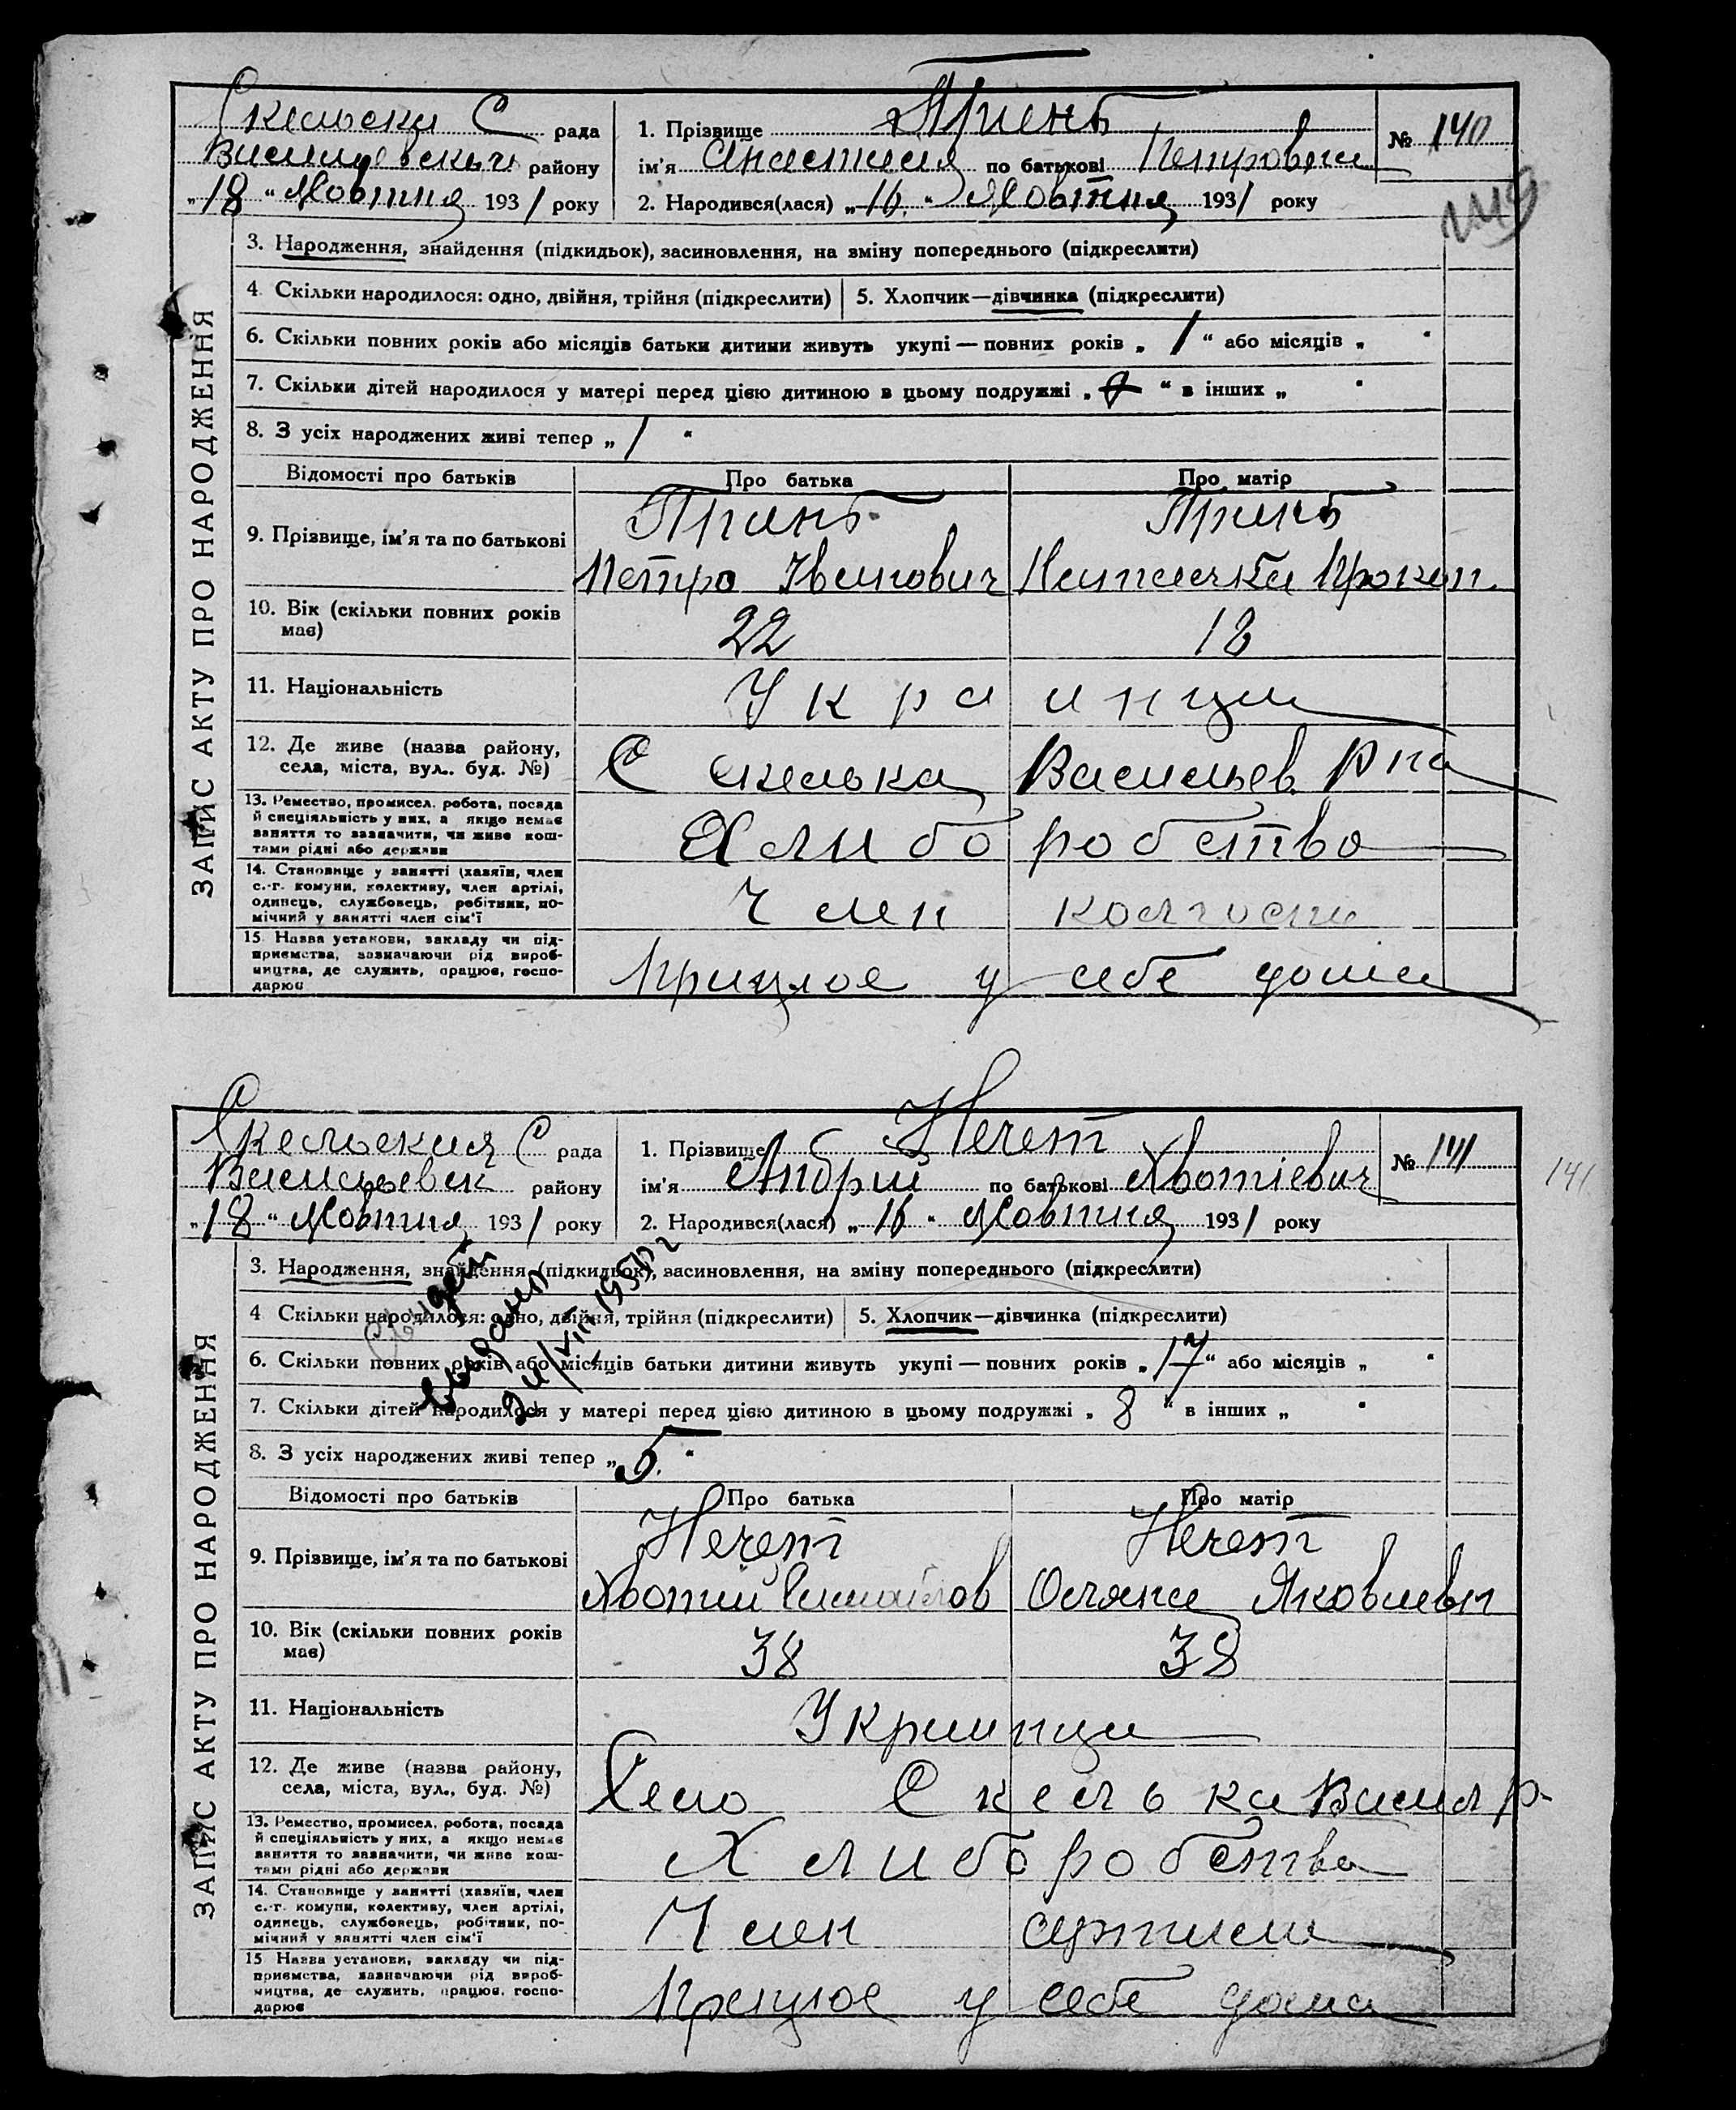 ЗАПИС АКТУ ПРО НАРОДЖЕННЯ
Скельски С рада
району
„18“ Жовтня 1931 року
1. Прізвище Тринь
ім’я Анастасия по батькові Петровна
2. Народився(лася) „16.“ Жовтня 1931 року
№ 140
3. Народження, знайдення (підкидьок), засиновлення, на зміну попереднього (підкреслити)
4. Скільки народилося: одно, двійня, трійня (підкреслити)
5. Хлопчик—дівчинка (підкреслити)
6. Скільки повних років або місяців батьки дитини живуть укупі — повних років „ 1 “ або місяців „ “
7. Скільки дітей народилося у матері перед цією дитиною в цьому подружжі „ “ в інших „ “
8. З усіх народжених живі тепер „ 1 “
Відомості про батьків
Про батька
Про матір
9. Прізвище, ім’я та по батькові
Тринь
Петро Иванович
Тринь
Наталка Прокоп.
10. Вік (скільки повних років має)
22
18
11. Національність
Украинци
12. Де живе (назва району, села, міста, вул.. буд. №)
С Скелька Васильев. Р на
13. Ремество, промисел, робота, посада
й спеціяльність у них, а якщо немає
заняття то зазначити, чи живе кош-
тами рідні або держави
Хлиборобство
14. Становище у занятті (хазяїн, член
с.-г. комуни, колективу, член артілі,
одинець, службовець, робітник, по-
мічний у занятті член сім’ї
Член колгоспа
15. Назва установи, закладу чи під-
приємства, зазначаючи рід вироб-
ництва, де служить, працює, госпо-
дарює
Працюе у себе дома
ЗАПИС АКТУ ПРО НАРОДЖЕННЯ
Скельская С рада
Васильевск району
„18“ Жовтня 1931 року
1. Прізвище Нечет
ім’я Андрий по батькові Хвотіевич
2. Народився(лася) „16“ Жовтня 1931 року
№ 141
141
3. Народження, знайдення (підкидьок), засиновлення, на зміну попереднього (підкреслити)
4 Скільки народилося: одно, двійня, трійня (підкреслити)
5. Хлопчик—дівчинка (підкреслити)
6. Скільки повних років або місяців батьки дитини живуть укупі — повних років „ 17 “ або місяців „ “
7. Скільки дітей народилося у матері перед цією дитиною в цьому подружжі „ 8 “ в інших „ “
8. З усіх народжених живі тепер „ 5. “
Відомості про батьків
Про батька
Про матір
9. Прізвище, ім’я та по батькові
Нечет
Хвотий
Нечет
Оляна Яковлевн
10. Вік (скільки повних років має)
38
38
11. Національність
Украинци
12. Де живе (назва району, села, міста, вул., буд. №)
Село Скелька Васил р-
13. Ремество, промисел, робота, посада
й спеціяльність у них, а якщо немає
заняття то зазначити, чи живе кош-
тами рідні або держави
Хлиборобства
14. Становище у занятті (хазяїн, член
с.-г. комуни, колективу, член артілі,
одинець, службовець, робітник, по-
мічний у занятті член сім’ї
Член артили
15 Назва установи, закладу чи під-
приємства, зазначаючи рід вироб-
ництва, де служить, працює, госпо-
дарює
Працюе у себе дома